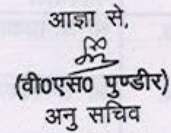 आज्ञा से,
(वी०एस० पुण्डीर)
अनु सचिव